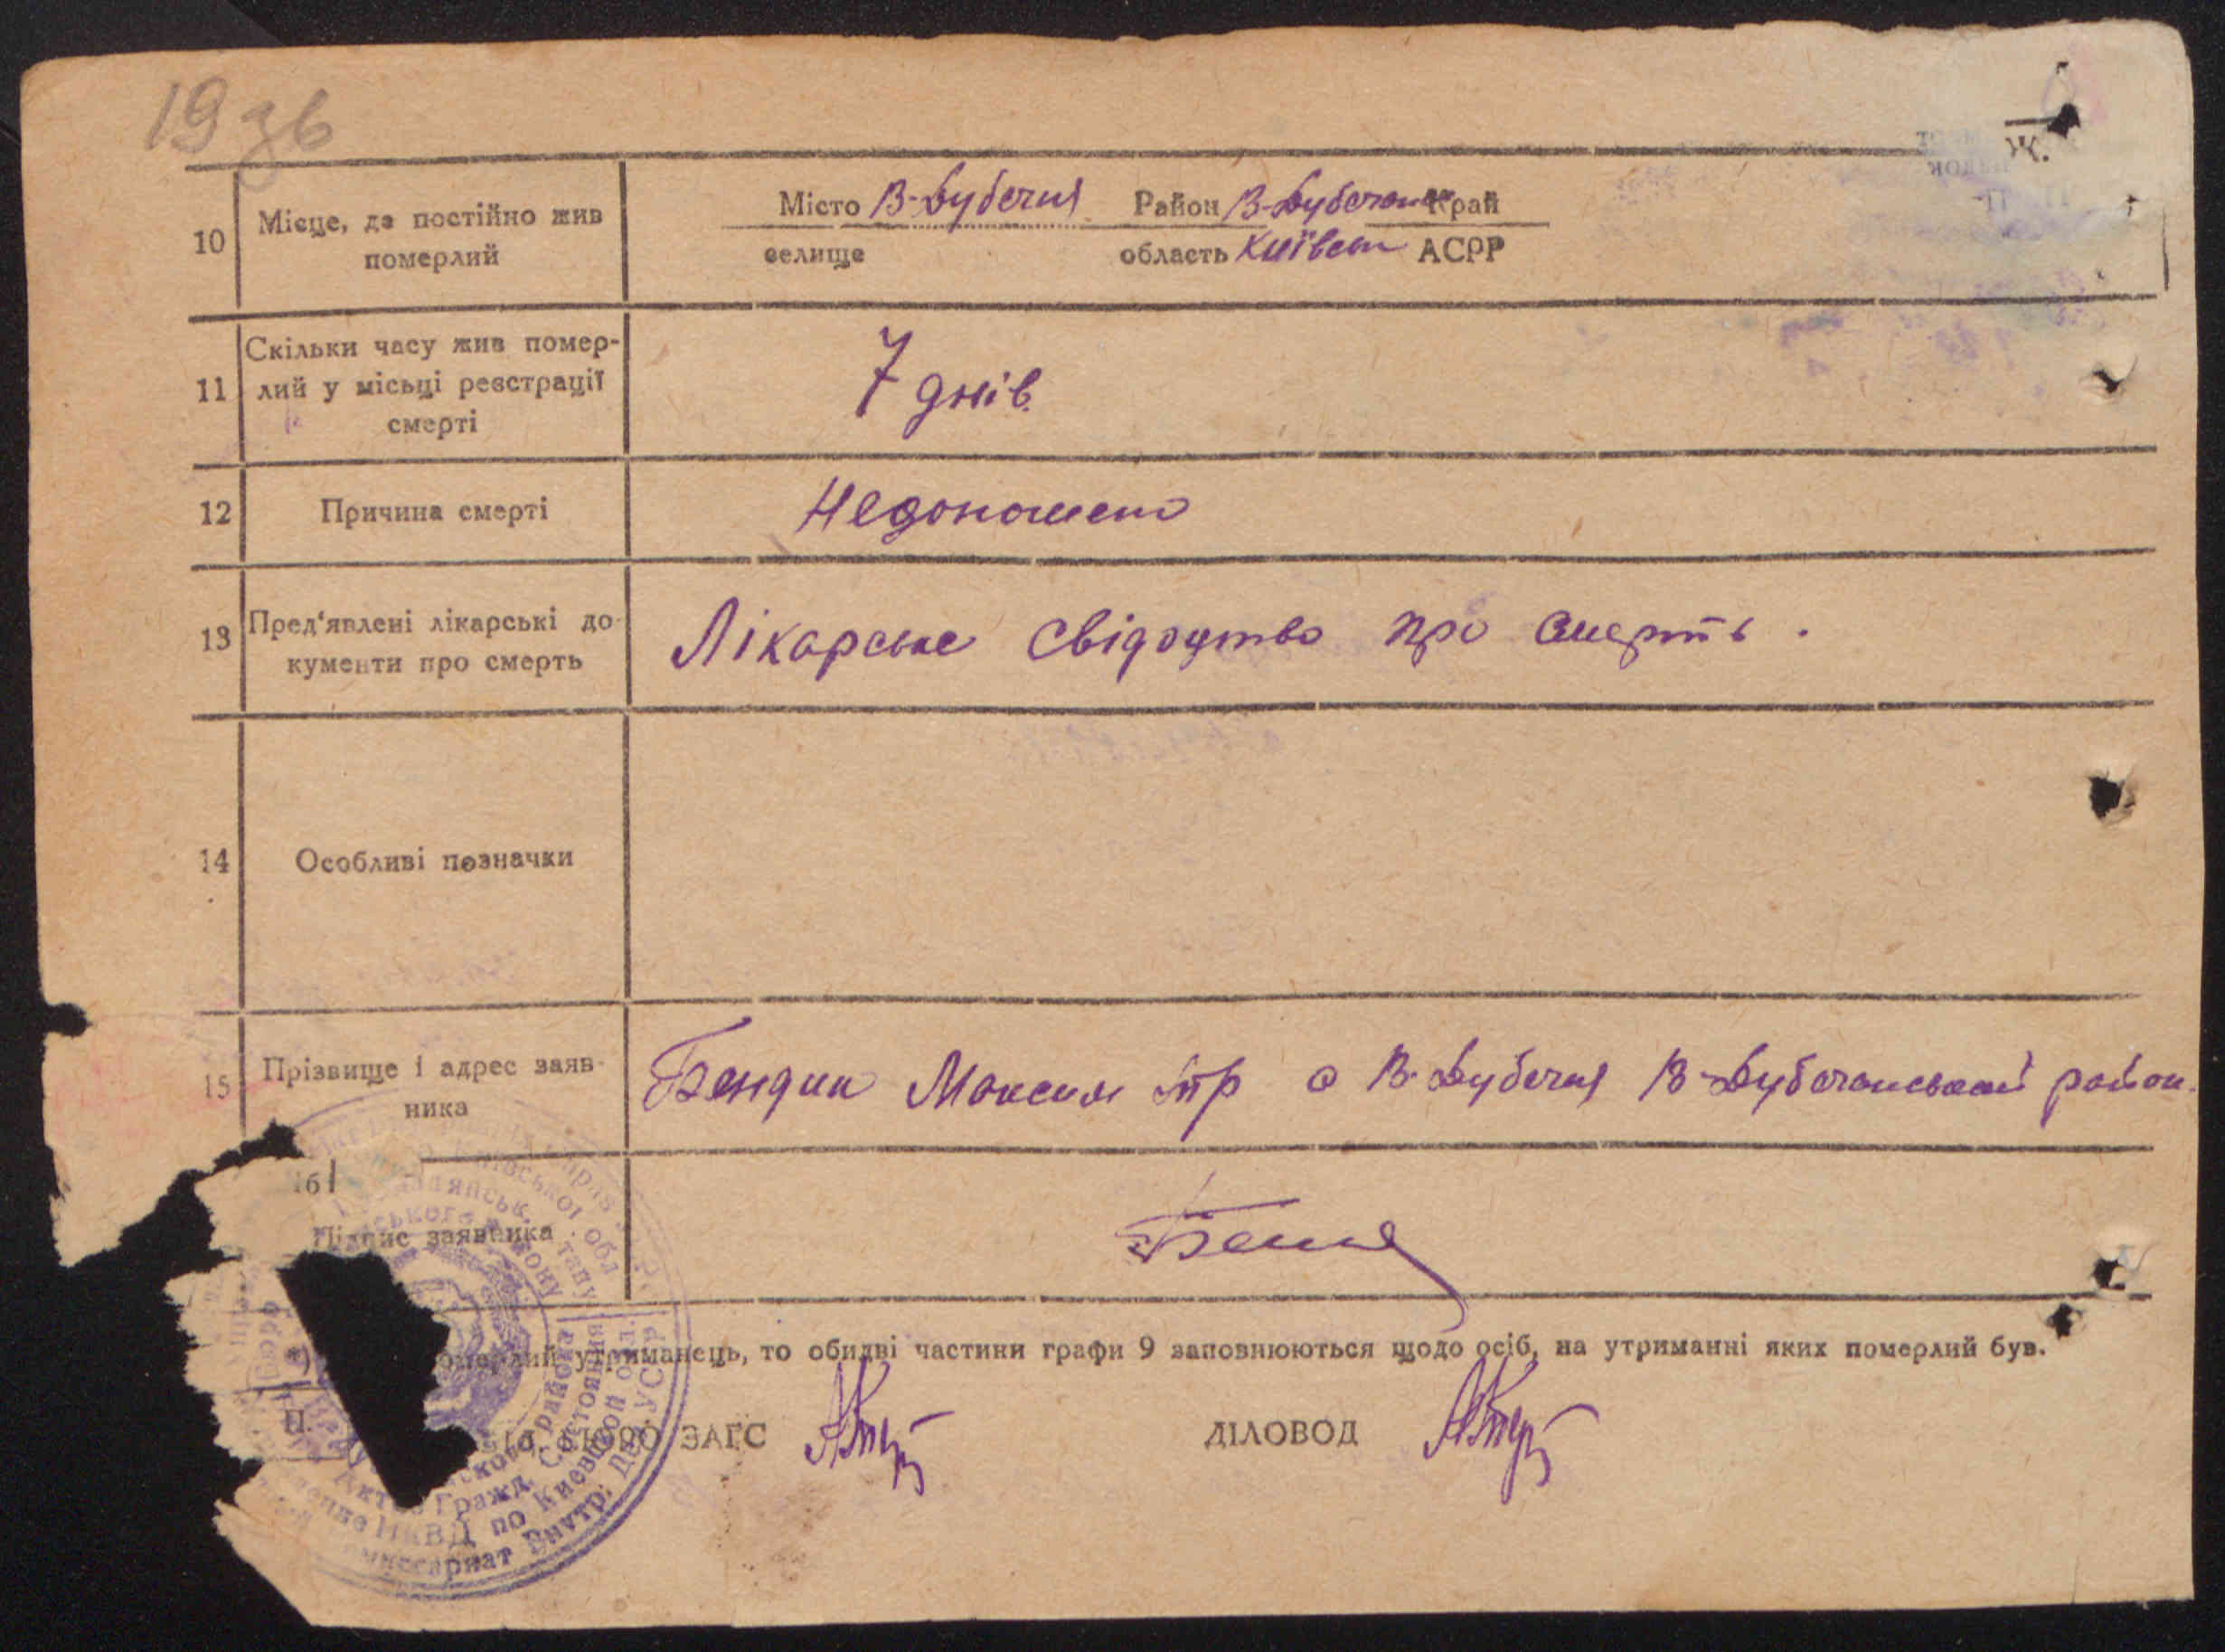 19 зв
Ж.
10 Місце, де постійно жив померлий
Місто В-Дубечня Район В-Дубечанськ Край
селище область Київськ АСРР
11 Скільки часу жив помер-
лий у місьці реєстрації
смерті
7 днів.
12 Причина смерті Недоношен
13 Пред'явлені лікарські до-
кументи про смерть
Лікарське свідоцтво про смерть.
14 Особливі позначки
15 Прізвище і адрес заяв-
ника
Бендик Максим В-Дубечня В-Дубечанський район.
16
Підпис заявника
*) померлий утриманець, то обидві частини графи 9 заповнюються щодо осіб, на утриманні яких померлий був.
БЮРО ЗАГС ДІЛОВОД
Київської обл
района
Актов Гражд. Состояния
НКВД по Киевской обл.
Комиссариат Внутр. Дел УССР